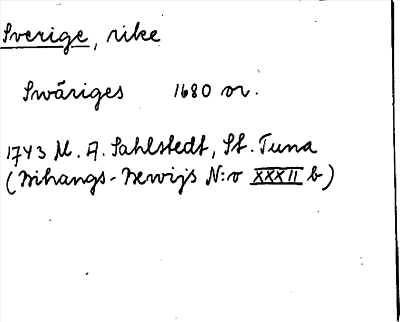 Sverige, rike
Swäriges 1680 or.
1743 M. A. Sahlstedt, St. Tuna
(Bihangs-Bewijs N:o XXXII b)